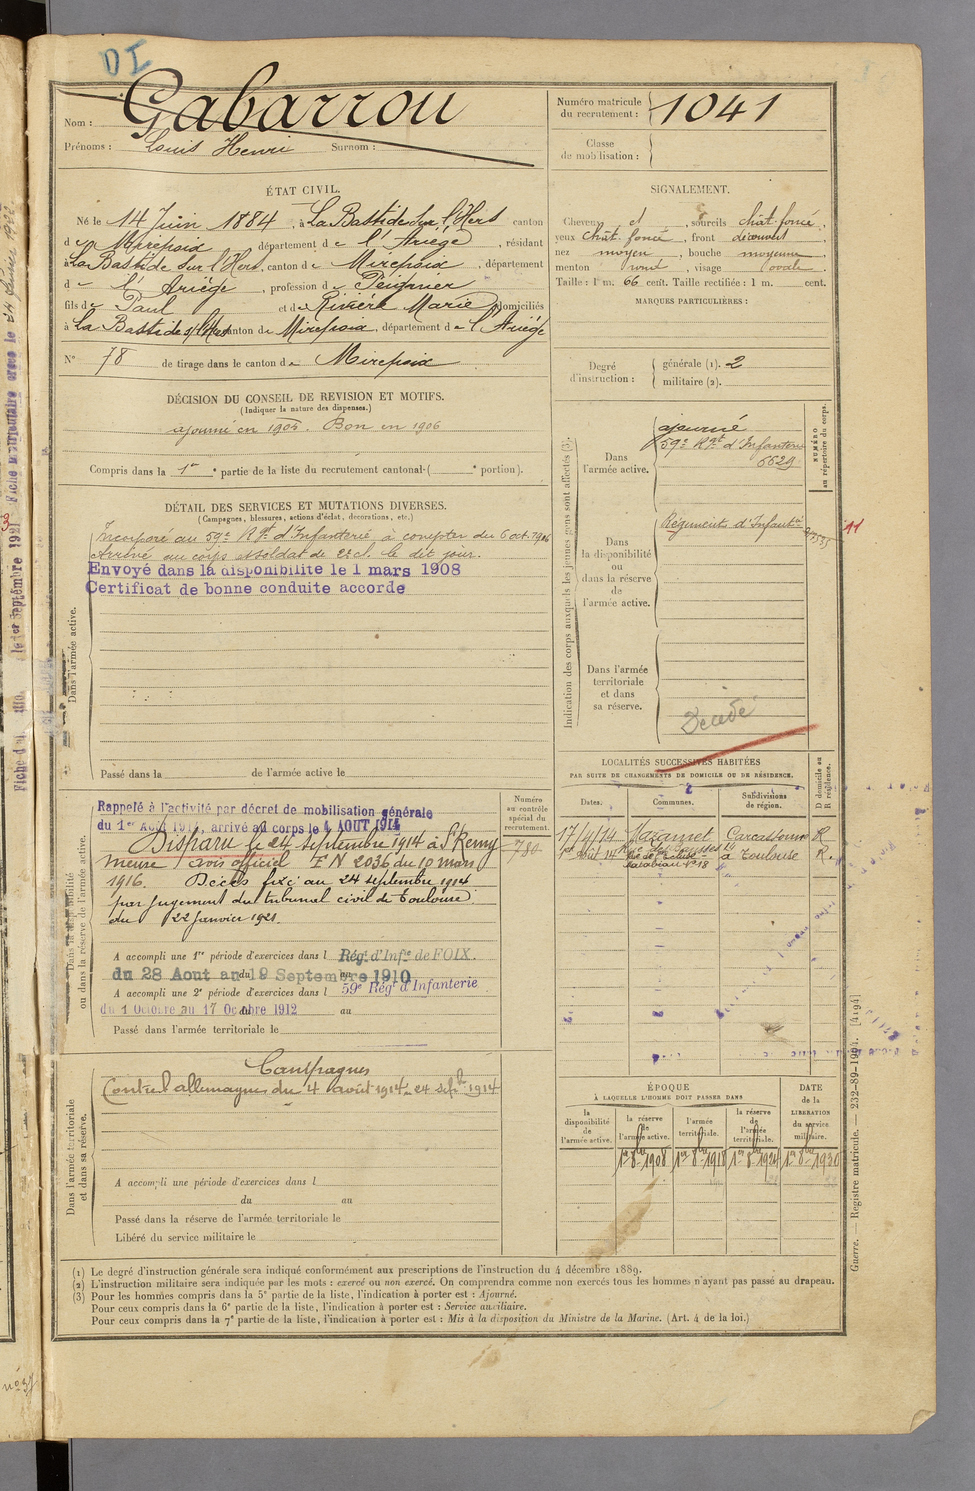 DI
Nom : Gabarrou
Prénoms : Louis Henri Surnom :
Numéro matricule du recrutement : 1041
Classe de mobilisation :
ÉTAT CIVIL.
Né le 14 Juin 1884, à La Bastide sur l'Hers canton
de Mirepoix département de l'Ariège, résidant
à La Bastide sur l'Hers, canton de Mirepoix, département
de l'Ariège, profession de Peigneur
fils de Paul et de Rivière Marie domiciliés
à La Bastide s/l'Hers canton de Mirepoix, département de l'Ariège
N° 78 de tirage dans le canton de Mirepoix
SIGNALEMENT.
Cheveux et, sourcils chât. foncé,
yeux chât. foncé, front découvert,
nez moyen, bouche moyenne
menton rond, visage ovale.
Taille : 1 m. 66 cent. Taille rectifiée : 1 m. cent.
MARQUES PARTICULIÈRES :
Degré d'instruction :
générale (1). 2
militaire (2).
DÉCISION DU CONSEIL DE REVISION ET MOTIFS.
(Indiquer la nature des dispenses.)
ajourné en 1905. Bon en 1906
Compris dans la 1re partie de la liste du recrutement cantonal (e portion).
DÉTAIL DES SERVICES ET MUTATIONS DIVERSES.
(Campagnes, blessures, actions d'éclat, décorations, etc.)
Dans l'armée active.
Incorporé au 59e Rgt d'Infanterie à compter du 6 oct. 1906
Arrivé au corps et soldat de 2e cl. le dit jour.
Envoyé dans la disponibilite le 1 mars 1908
Certificat de bonne conduite accorde
Passé dans la de l'armée active le
Indication des corps auxquels les jeunes gens sont affectés (3).
NUMÉRO au répertoire du corps.
Dans l'armée active.
ajourné
59e Rgt d'Infanterie
6629
Dans la disponibilité ou dans la réserve de l'armée active.
Régiment d'Infanterie
Dans l'armée territoriale et dans sa réserve.
Décédé
LOCALITÉS SUCCESSIVES HABITÉES
PAR SUITE DE CHANGEMENTS DE DOMICILE OU DE RÉSIDENCE.
Dates. Communes. Subdivisions de région. D domicile ou R résidence.
17/4/14 Mazamet Carcassonne R
Toulouse R.
Dans la disponibilité ou dans la réserve de l'armée active.
Numéro au contrôle spécial du recrutement.
780
Rappelé à l'activité par décret de mobilisation générale
du 1er Août 1914, arrivé au corps le 4 AOUT 1914
Disparu le 24 septembre 1914 à St Remy
Meuse avis officiel FN 2036 du 10 mars
1916. Décès fixé au 24 septembre 1914
par jugement du tribunal civil de Toulouse
du 22 janvier 1921.
A accompli une 1re période d'exercices dans l Rég. d'Infie de FOIX.
du 28 Aout au 19 Septembre 1910
A accompli une 2e période d'exercices dans l 59e Régt d'Infanterie
du 1 Octobre au 17 Octobre 1912 au
Passé dans l'armée territoriale le
Dans l'armée territoriale et dans sa réserve.
Campagnes
Contre l'allemagne du 4 août 1914 - 24 sept. 1914
A accompli une période d'exercices dans l
du au
Passé dans la réserve de l'armée territoriale le
Libéré du service militaire le
ÉPOQUE
À LAQUELLE L'HOMME DOIT PASSER DANS
DATE de la LIBÉRATION du service militaire.
la disponibilité de l'armée active.
la réserve de l'armée active.
l'armée territoriale.
la réserve de l'armée territoriale.
1er 8bre 1908 1er 8bre 1918 1er 8bre 1924 1er 8bre 1930
(1) Le degré d'instruction générale sera indiqué conformément aux prescriptions de l'instruction du 4 décembre 1889.
(2) L'instruction militaire sera indiquée par les mots : exercé ou non exercé. On comprendra comme non exercés tous les hommes n'ayant pas passé au drapeau.
(3) Pour les hommes compris dans la 5e partie de la liste, l'indication à porter est : Ajourné.
Pour ceux compris dans la 6e partie de la liste, l'indication à porter est : Service auxiliaire.
Pour ceux compris dans la 7e partie de la liste, l'indication à porter est : Mis à la disposition du Ministre de la Marine. (Art. 4 de la loi.)
Guerre. Registre matricule. — 232-89-1904. [4194]